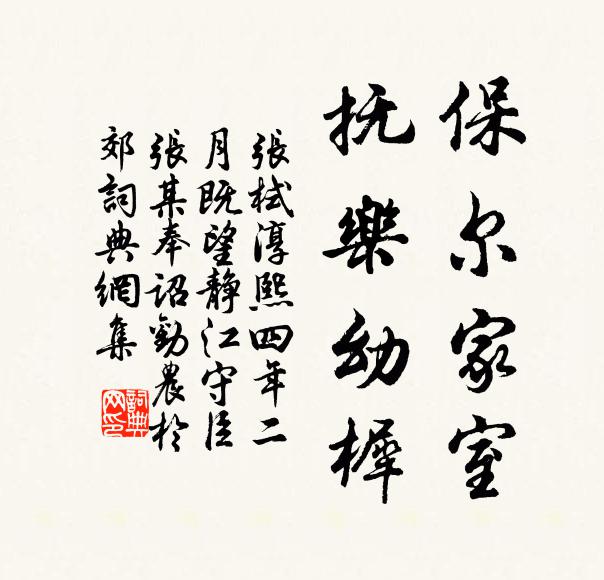 保尔家室
抚樂幼樨
張栻淳熙四年二
月既望静江守臣
張某奉詔勸農於
郊詞典網集
詞典网印